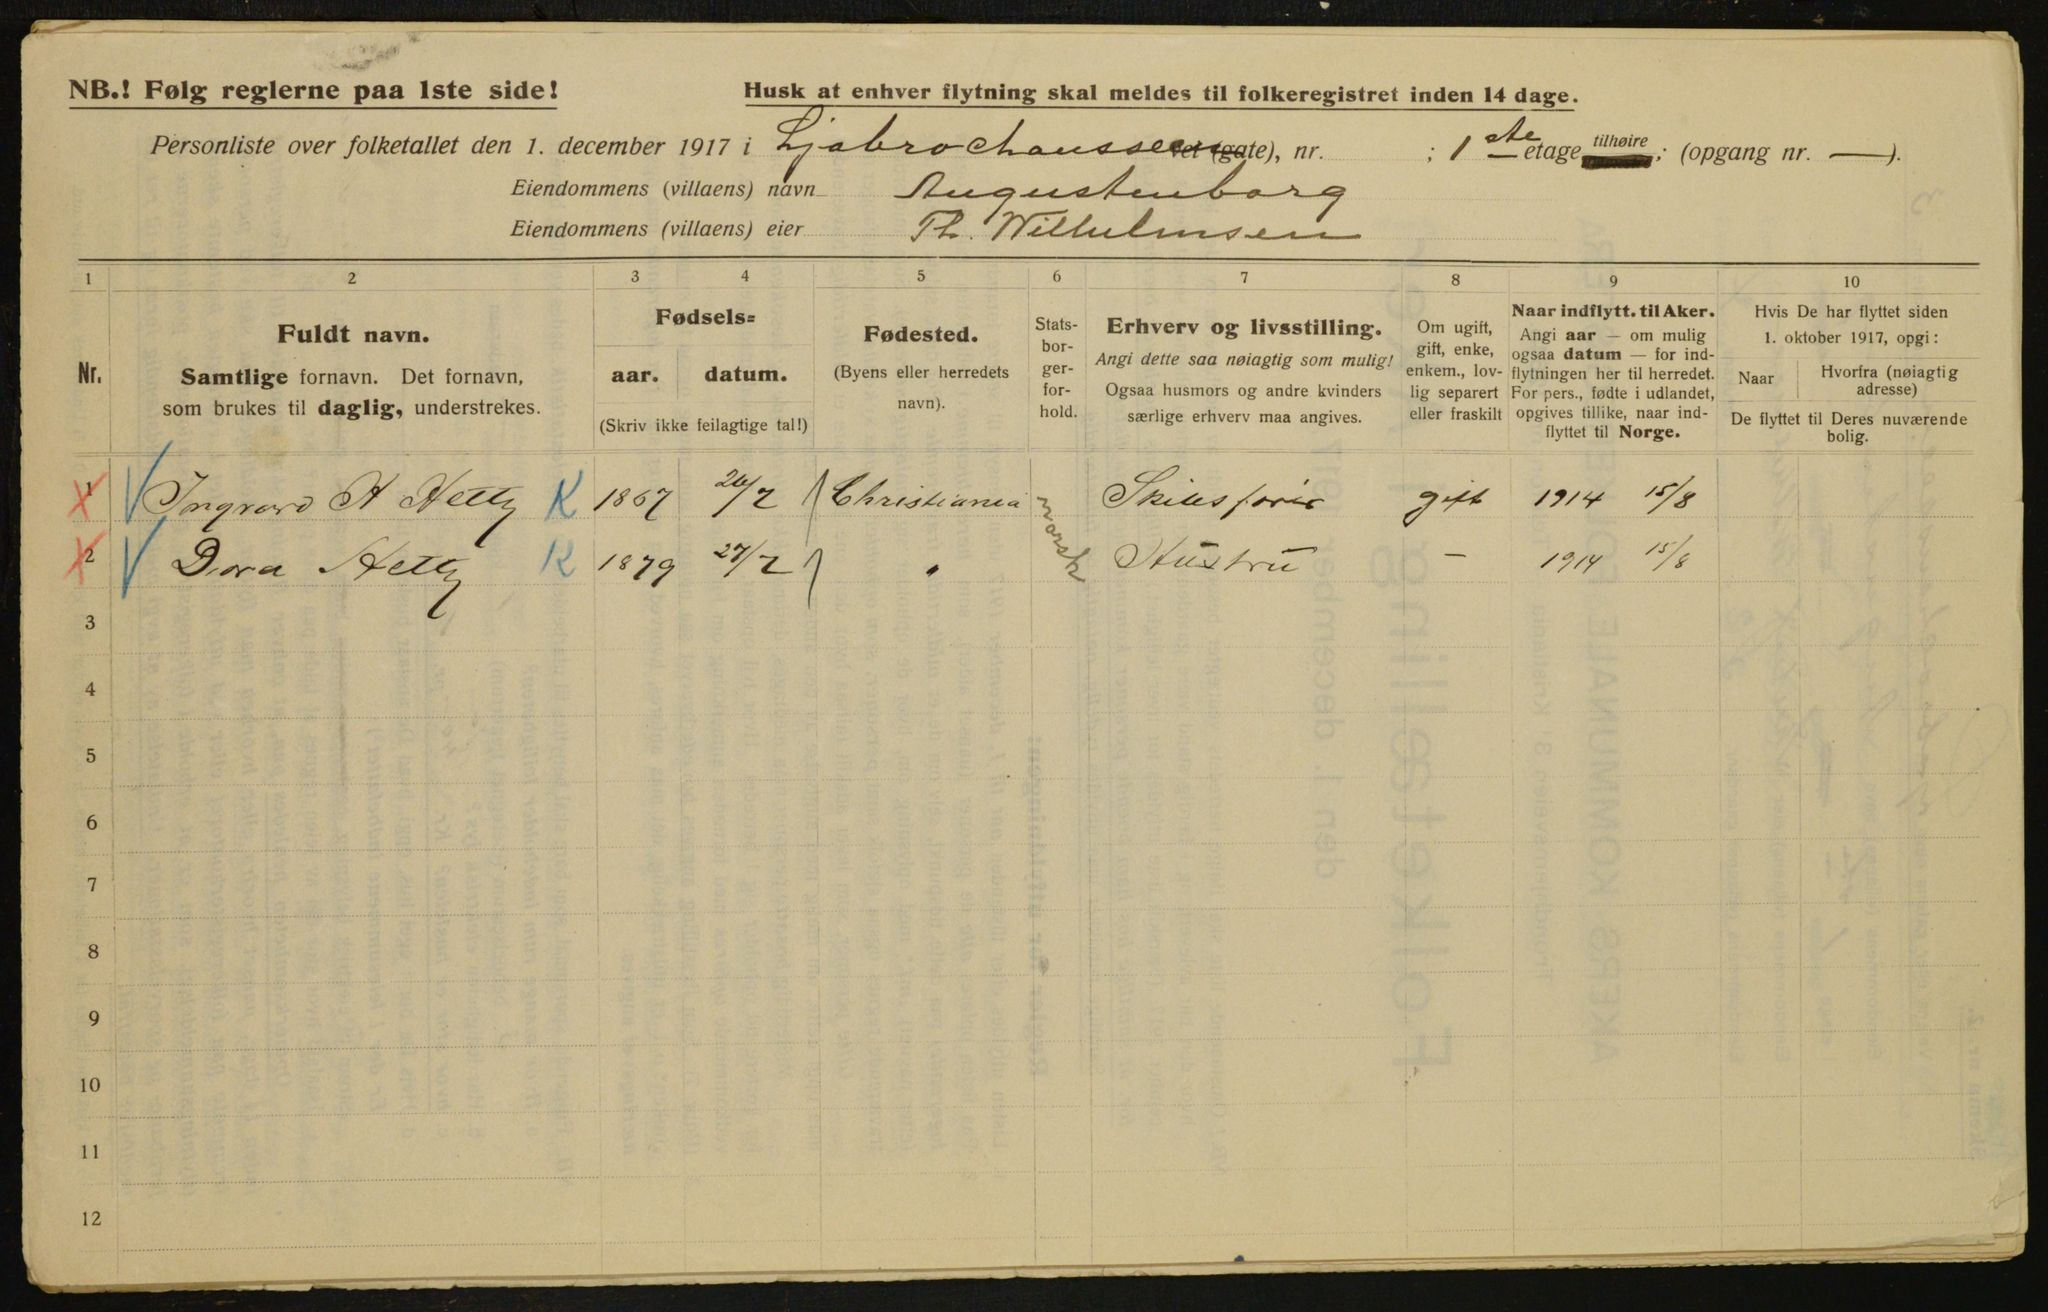 NB.! Følg reglerne paa 1ste side!
Husk at enhver flytning skal meldes til folkeregistret inden 14 dage.
Personliste over folketallet den 1. december 1917 i Ljabrochausseen vei (gate), nr. ; 1ste etage tilhøire ; (opgang nr. — ).
Eiendommens (villaens) navn Augustenborg
Eiendommens (villaens) eier Th. Wilhelmsen
1 2 3 4 5 6 7 8 9 10
Nr.
Fuldt navn.
Samtlige fornavn. Det fornavn,
som brukes til daglig, understrekes.
Fødsels-
aar. datum.
(Skriv ikke feilagtige tal!)
Fødested.
(Byens eller herredets
navn).
Stats-
bor-
ger-
for-
hold.
Erhverv og livsstilling.
Angi dette saa nøiagtig som mulig!
Ogsaa husmors og andre kvinders
særlige erhverv maa angives.
Om ugift,
gift, enke,
enkem., lov-
lig separert
eller fraskilt
Naar indflytt. til Aker.
Angi aar — om mulig
ogsaa datum — for ind-
flytningen her til herredet.
For pers., fødte i udlandet,
opgives tillike, naar ind-
flyttet til Norge.
Hvis De har flyttet siden
1. oktober 1917, opgi:
Naar
Hvorfra (nøiagtig
adresse)
De flyttet til Deres nuværende
bolig.
1 Ingvard A Hetty K 1867 26/2 Christiania norsk Skibsfører gift 1914 15/8
2 Dora Hetty K 1879 27/2 " Hustru — 1914 15/8
3
4
5
6
7
8
9
10
11
12